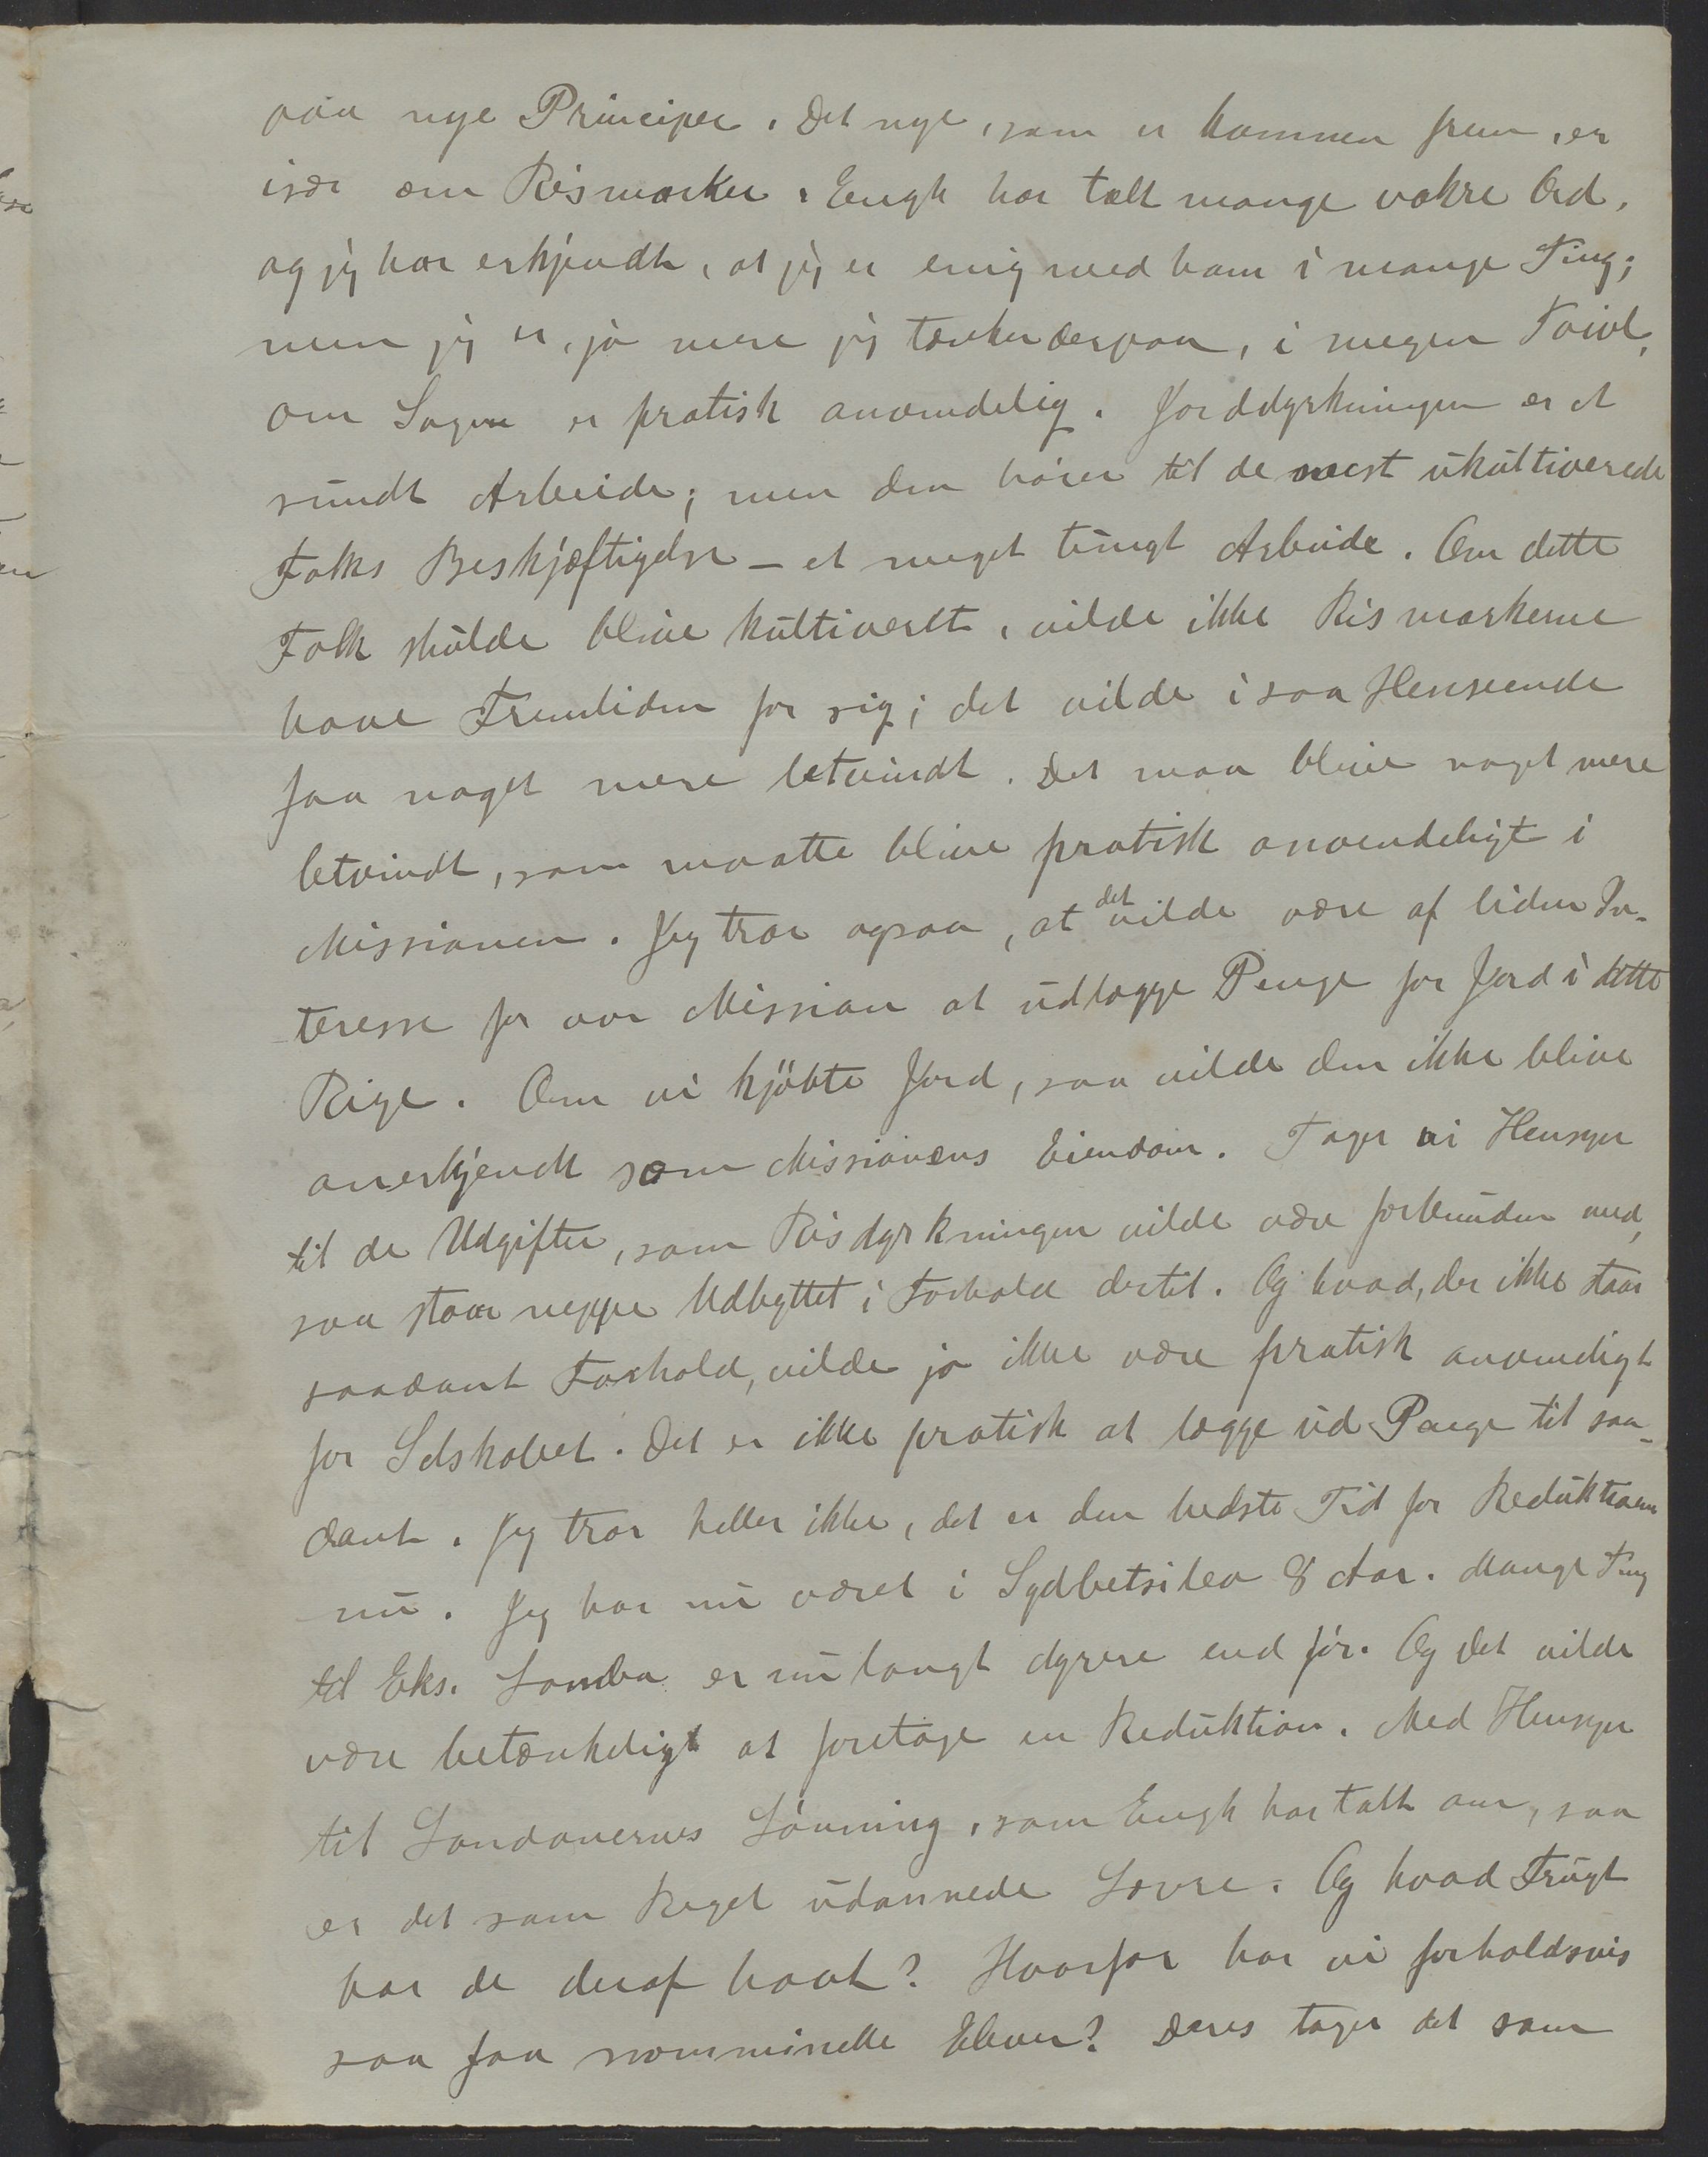 paa nye Principer. Det nye, som er kommen frem, er
især om Rismarker. Engh har talt mange vakre Ord,
og jeg har erkjendt, at jeg er enig med ham i mange Ting;
men jeg er, jo mere jeg tænker derpaa, i megen Tvivl,
om Sagen er pratisk anvendelig. Jorddyrkningen er et
sundt Arbeide; men den hører til de mest ukultiverede
Folks Beskjæftigelse – et meget tungt Arbeide. Om dette
Folk skulde blive kultiveret, vilde ikke Rismarkerne
have Fremtiden for sig; det vilde i saa Henseende
faa noget mere letvindt. Det maa blive noget mere
letvindt, som maatte blive pratisk anvendeligt i
Missionen. Jeg tror ogsaa, at det vilde være af liden In-
teresse for vor Mission at udlægge Penge for Jord i dette
Rige. Om vi kjöbte Jord, saa vilde den ikke blive
anerkjendt som Missionens Eiendom. Tager vi Hensyn
til de Udgifter, som Risdyrkningen vilde være forbunden med,
saa staar neppe Udbyttet i Forhold dertil. Og hvad, der ikke staar
saadant Forhold, vilde jo ikke være pratisk anvendligt
for Selskabet. Det er ikke pratisk at lægge ud Penge til saa-
dant. Jeg tror heller ikke, det er den bedste Tid for Reduktioner
nu. Jeg har nu været i Sydbetsileo 8 Aar. Mange Ting
til Eks. Lamba er nu langt dyrere end før. Og det vilde
være betænkeligt at foretage en Reduktion. Med Hensyn
til Landanernes Lønning, som Engh har talt om, saa
er det som Regel udannede Lærere. Og hvad Frugt
har de deraf havt? Hvorfor har vi forholdsvis
saa faa nomminelle Elever? Deres tager det som